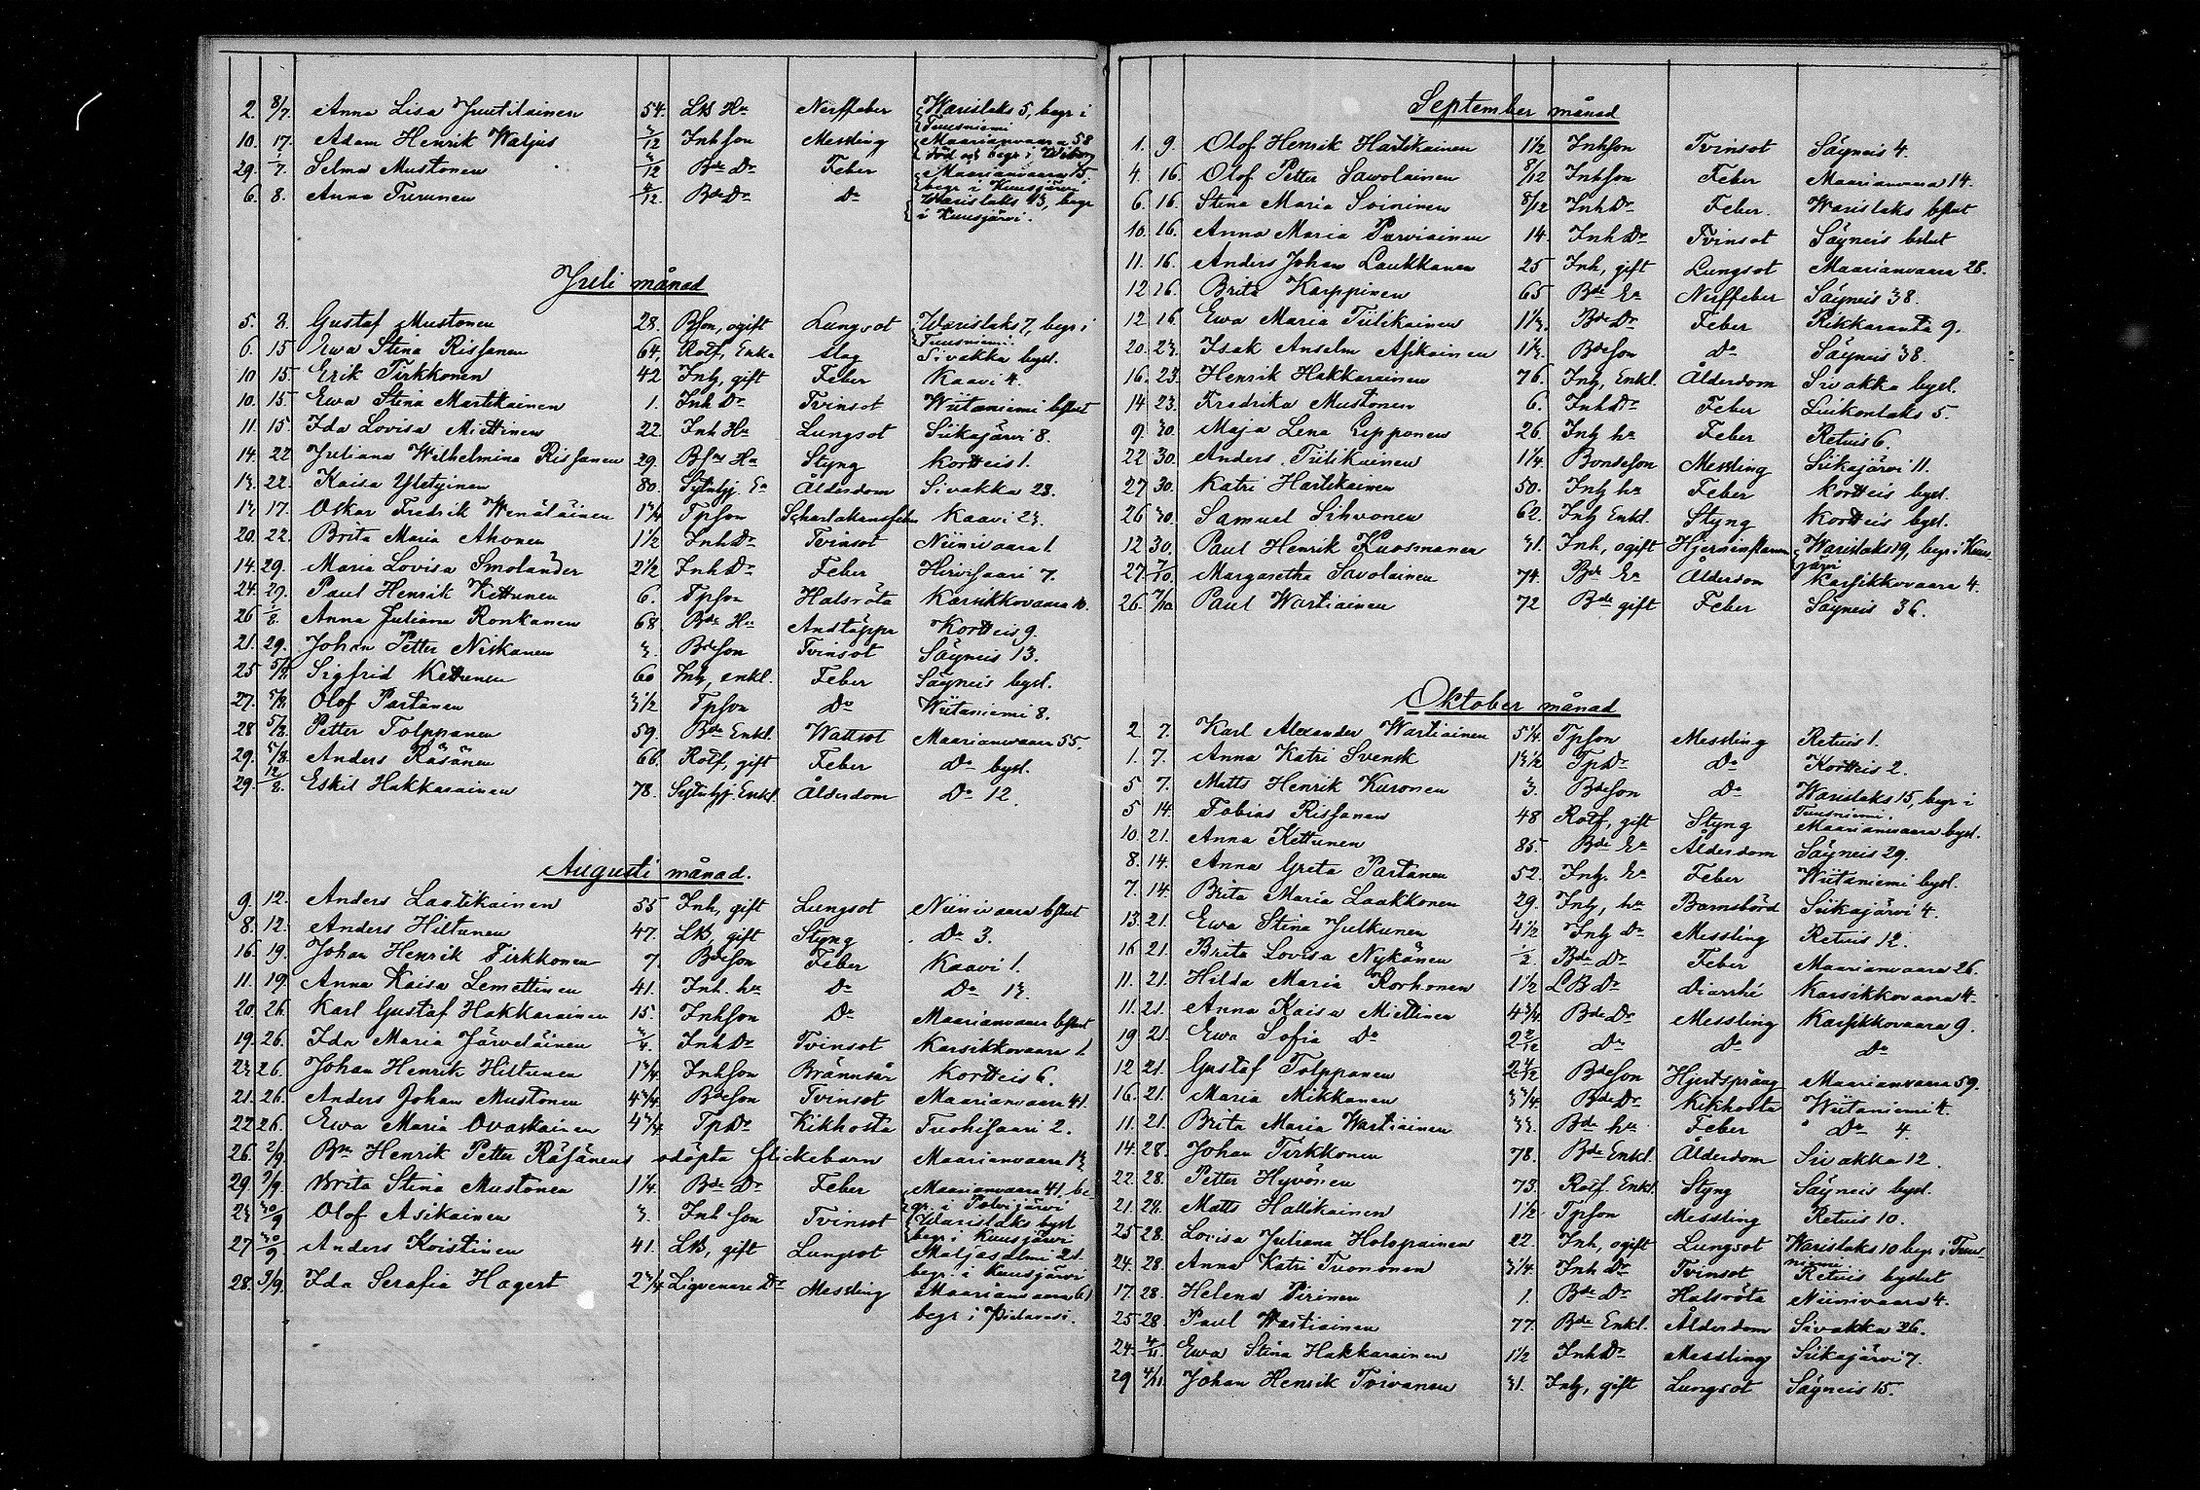 2. 8/7. Anna Lisa Juutilainen 54. Lbs Hu Nerffeber Warislaks 5, begr i Tuusniemi
10. 17. Adam Henrik Waljus 3/12 Inhson Messling Maarianvaara 58 död och begr i Wiborg
29. 1/7. Selma Mustonen 3/12 Bde Dr Feber Maarianvaara 15. begr i Kuusjärvi
6. 8. Anna Turunen 2/12. Bde Dr Do Warislaks 13, begr i Kuusjärvi.
Juli månad
5. 8. Gustaf Mustonen 28. Bson, ogift Lungsot Warislaks 7, begr i Tuusniemi.
6. 15 Ewa Stina Rissanen 64, Rotf, Enka slag Sivakka bysl.
10 15. Erik Tirkkonen 42 Inh, gift Feber Kaavi 4.
10. 15 Ewa Stina Martikainen 1. Inh Dr Tvinsot Wiitaniemi bslut
11. 15 Ida Lovisa Miettinen 22. Inh Hu Lungsot Siikajärvi 8.
14. 22 Juliana Wilhelmina Rissanen 29. Bsns Hu Styng Kortteis 1.
13. 22. Kaisa Yletyinen 80. Sytnhj. Ea Ålderdom Sivakka 28.
13 17. Oskar Fredrik Wenäläinen 1 3/4 Tpson Scharlakansfeber Kaavi 23.
20. 22. Brita Maria Ahonen 1 1/2 Inh Dr Tvinsot Niinivaara 1
14. 29. Maria Lovisa Smolander 2 1/2 Inh Dr Feber Hirvisaari 7.
24. 29. Paul Henrik Kettunen 6. Tpson Halsröta Karsikkovaara 10.
26 1/8. Anna Juliana Ronkanen 68 Bde Hu Andtäppa Kortteis 9.
21. 29. Johan Petter Niskanen 3. Bdeson Tvinsot Säyneis 13.
25 5/8. Sigfrid Kettunen 60 Inh, enkl. Feber Säyneis bysl.
27. 5/8. Olof Partanen 3 1/2 Tpson Do Wiitaniemi 8.
28 5/8. Petter Tolppanen 59. Bde Enkl. Wattsot Maarianvaara 55.
29. 5/8. Anders Räsänen 66. Rotf, gift Feber Do bysl.
29. 12/8. Eskil Hakkarainen 78. Sytnhj Enkl. Ålderdom Do 12.
Augusti månad.
9. 12. Anders Laatikainen 55 Inh, gift Lungsot Niinivaara bslut
8. 12. Anders Hiltunen 47. Lbs, gift Styng Do 3.
16. 19. Johan Henrik Tirkkonen 7. Bdeson Feber Kaavi 1.
11. 19. Anna Kaisa Lemettinen 41. Inh. hu Do Do 13.
20. 26. Karl Gustaf Hakkarainen 15. Inhson Do Maarianvaara bslut
19. 26. Ida Maria Järveläinen 3/4. Inh Dr Tvinsot Karsikkovaara 1
23 26. Johan Henrik Hiltunen 1 3/4. Inhson Brännsår Kortteis 6.
21. 26. Anders Johan Mustonen 4 3/4. Bdeson Tvinsot Maarianvaara 41.
22 26. Ewa Maria Ovaskainen 4 3/4 Tp Dr Kikhosta Tuohisaari 2.
26. 2/9. Bn Henrik Petter Räsänens odöpta flickebarn Maarianvaara 13
29 2/9. Brita Stina Mustonen 1 1/4. Bde Dr Feber Maarianvaara 41. begr. i Polvijärvi
23 30/9 Olof Asikainen 3. Inh son Tvinsot Warislaks bysl begr i Kuusjärvi
27 30/9. Anders Koistinen 41. Lbs, gift Lungsot Maljasalmi 21. begr. i Kuusjärvi
28. 3/9. Ida Serafia Hagert 2 3/4 Ligvenare Dr Messling Maarianvaara 61 begr i Pielavesi.
September månad
1. 9. Olof Henrik Hartikainen 1 1/2 Inhson Tvinsot Säyneis 4.
4. 16. Olof Petter Sawolainen 8/12 Inhson Feber Maarianvaara 14.
6. 16. Stina Maria Soininen 8/12 Inh Dr Feber. Warislaks bslut
10. 16. Anna Maria Parviainen 14. Inh Dr Tvinsot Säyneis bslut
11. 16. Anders Johan Laukkanen 25 Inh, gift Lungsot Maarianvaara 28.
12 16. Brita Karppinen 65 Bde Ea Nerffeber Säyneis 38.
12 16. Ewa Maria Tiilikainen 1 1/3. Bde Dr Feber Rikkaranta 9.
20. 23. Isak Anselm Asikainen 1 1/3. Bdeson Do Säyneis 38.
16. 23. Henrik Hakkarainen 76. Inh, Enkl. Ålderdom Sivakka bysl.
14 23. Fredrika Mustonen 6. Inh Dr Feber Luikonlaks 5.
9. 30. Maja Lena Eipponen 26. Inh hu Feber Retuis 6.
22 30. Anders Tiilikainen 1 1/4. Bondeson Messling Siikajärvi 11.
27 30. Katri Hartikainen 50. Inh hu Feber Kortteis bysl.
26 30. Samuel Sihvonen 62. Inh Enkl. Styng Kortteis bysl.
12 30. Paul Henrik Kuosmanen 31. Inh, ogift Hjerninflamm Warislaks 19, begr i Kuusjärvi
27 7/10. Margaretha Savolainen 74. Bde Ea Ålderdom Karsikkovaara 4.
26. 7/10 Paul Wartiainen 72 Bde gift Feber Säyneis 36.
Oktober månad
2 7. Karl Alexander Wartiainen 5 1/4. Tpson Messling Retuis 1.
1. 7. Anna Katri Svensk 13 1/2 Tp Dr Do Kortteis 2.
5 7. Matts Henrik Kuronen 3. Bdeson Do Warislaks 15, begr i Tuusniemi.
5 14. Tobias Rissanen 48 Rotf, gift Styng Maarianvaara bysl.
10. 21. Anna Kettunen 85. Bde Ea Ålderdom Säyneis 29.
8. 14. Anna Greta Partanen 52. Inh. Ea Feber Wiitaniemi bysl.
7. 14. Brita Maria Laakkonen 29. Inh, hu Barnsbörd Siikajärvi 4.
13. 21. Ewa Stina Julkunen 4 1/2 Inh Dr Messling Retuis 12.
16 21. Brita Lovisa Nykänen 1/2. Bde Dr Feber Maarianvaara 26.
11. 21. Hilda Maria Korhonen 1 1/2 LB Dr Diarrhé Karsikkovaara 4.
11. 21. Anna Kaisa Miettinen 4 3/4. Bde Dr Messling Karsikkovaara 9.
19 21. Ewa Sofia Do 2 2/12 Do Do Do
12 21. Gustaf Tolppanen 2 4/12 Bdeson Hjertsprång Maarianvaara 59.
16. 21. Maria Mikkanen 3 3/4. Bde Dr Kikhosta Wiitaniemi 4.
11. 21. Brita Maria Wartiainen 33. Bde hu Feber Do 4.
14. 28. Johan Tirkkonen 78. Bde Enkl. Ålderdom Sivakka 12.
22. 28. Petter Hyvönen 73. Rotf Enkl. Styng Säyneis bysl.
21. 28. Matts Hallikainen 1 1/2 Tpson Messling Retuis 10.
25 28. Lovisa Juliana Holopainen 22 Inh, ogift Lungsot Warislaks 10 begr i Tuusniemi.
24. 28. Anna Katri Tuononen 3 1/4. Inh Dr Tvinsot Retuis byslut
17. 28. Helena Pirinen 1. Bde Dr Halsröta Niinivaara 4.
25 28. Paul Wartiainen 77. Bde Enkl. Ålderdom Sivakka 26.
24. 4/11. Ewa Stina Hakkarainen 1 1/2 Inh Dr Messling Siikajärvi 7.
29 4/11. Johan Henrik Toivanen 31. Inh, gift Lungsot Säyneis 15.